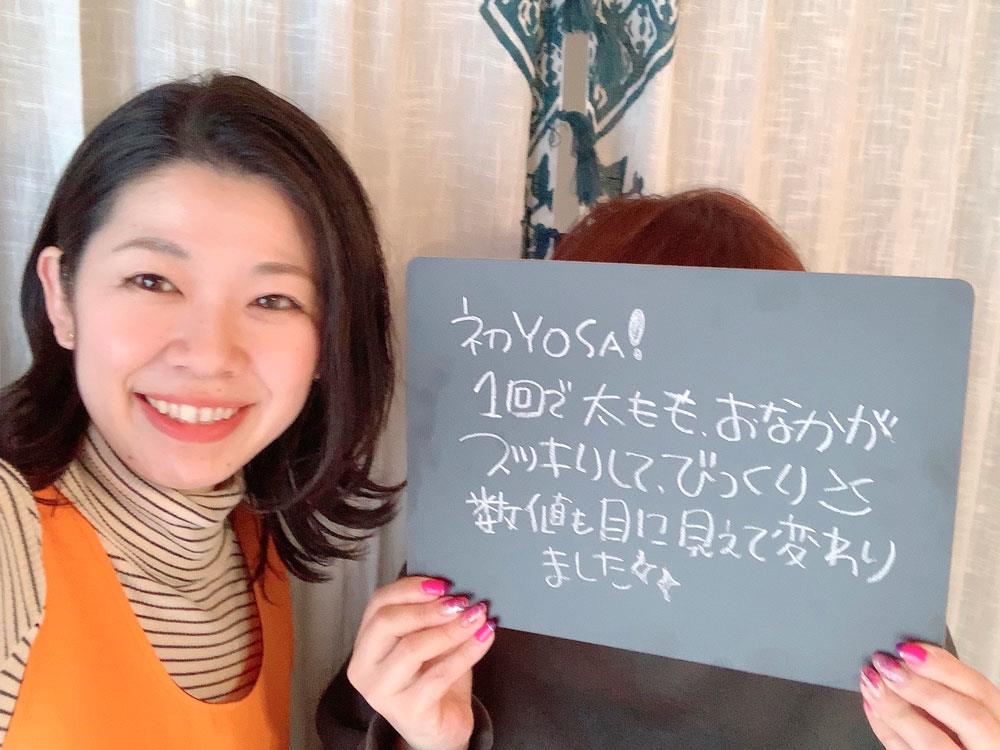 初YOSA!
1回で太もも、おなかが
スッキリして、びっくり
数値も目に見えて変わり
ました